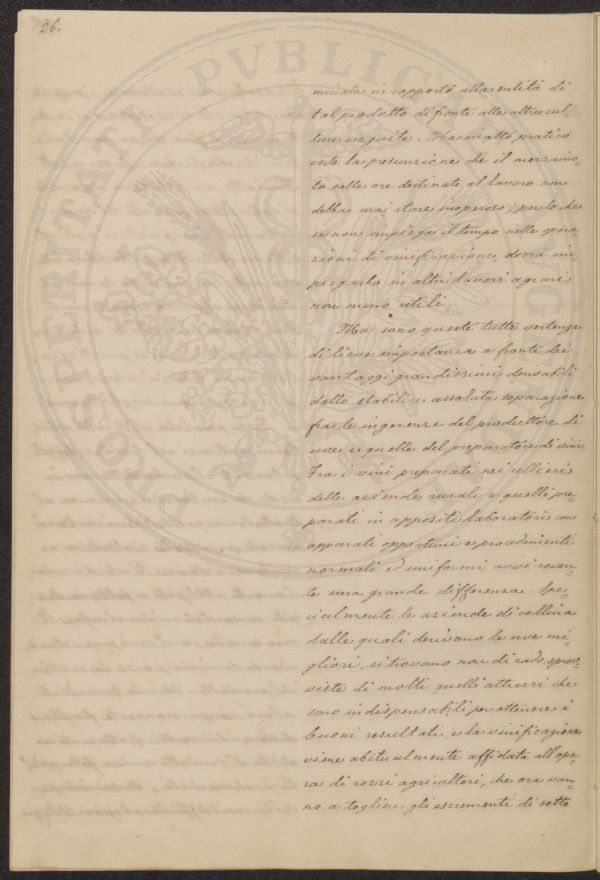 26.
PROSPERITATI PUBLICAE
minata in rapporto alla entità di
tal prodotto di fronte alle altre cul-
ture eseguite. Ha in atto pratico
verte la presunzione che il mezzaiuo-
lo nelle ore destinate al lavoro non
debba mai stare inoperoso; per lo che
se non impiega il tempo nelle opera-
zioni di vinificazione, dovrà im-
piegarlo in altri lavori agrari
non meno utili.
Ma sono queste tutte vertenze
di lieve importanza a fronte dei
vantaggi grandissimi derivabili
dallo stabilire assoluta separazione
fra le ingerenze del produttore di
uve e quelle del preparatore di vini.
Fra i vini preparati nei cellieri
delle aziende rurali e quelli pre-
parati in appositi laboratorii con
apparati opportuni e procedimenti
normali ed uniformi avvi soven-
te una grande differenza. Spe-
cialmente le aziende di collina
dalle quali derivano le uve mi-
gliori, si trovano non di rado sprov-
viste di molti quelli attrezzi che
sono indispensabili per ottenere i
buoni resultati, e la vinificazione
viene abitualmente affidata all'ope-
ra di rozzi agricoltori, che ora van-
no a togliere gli escrementi di sotto